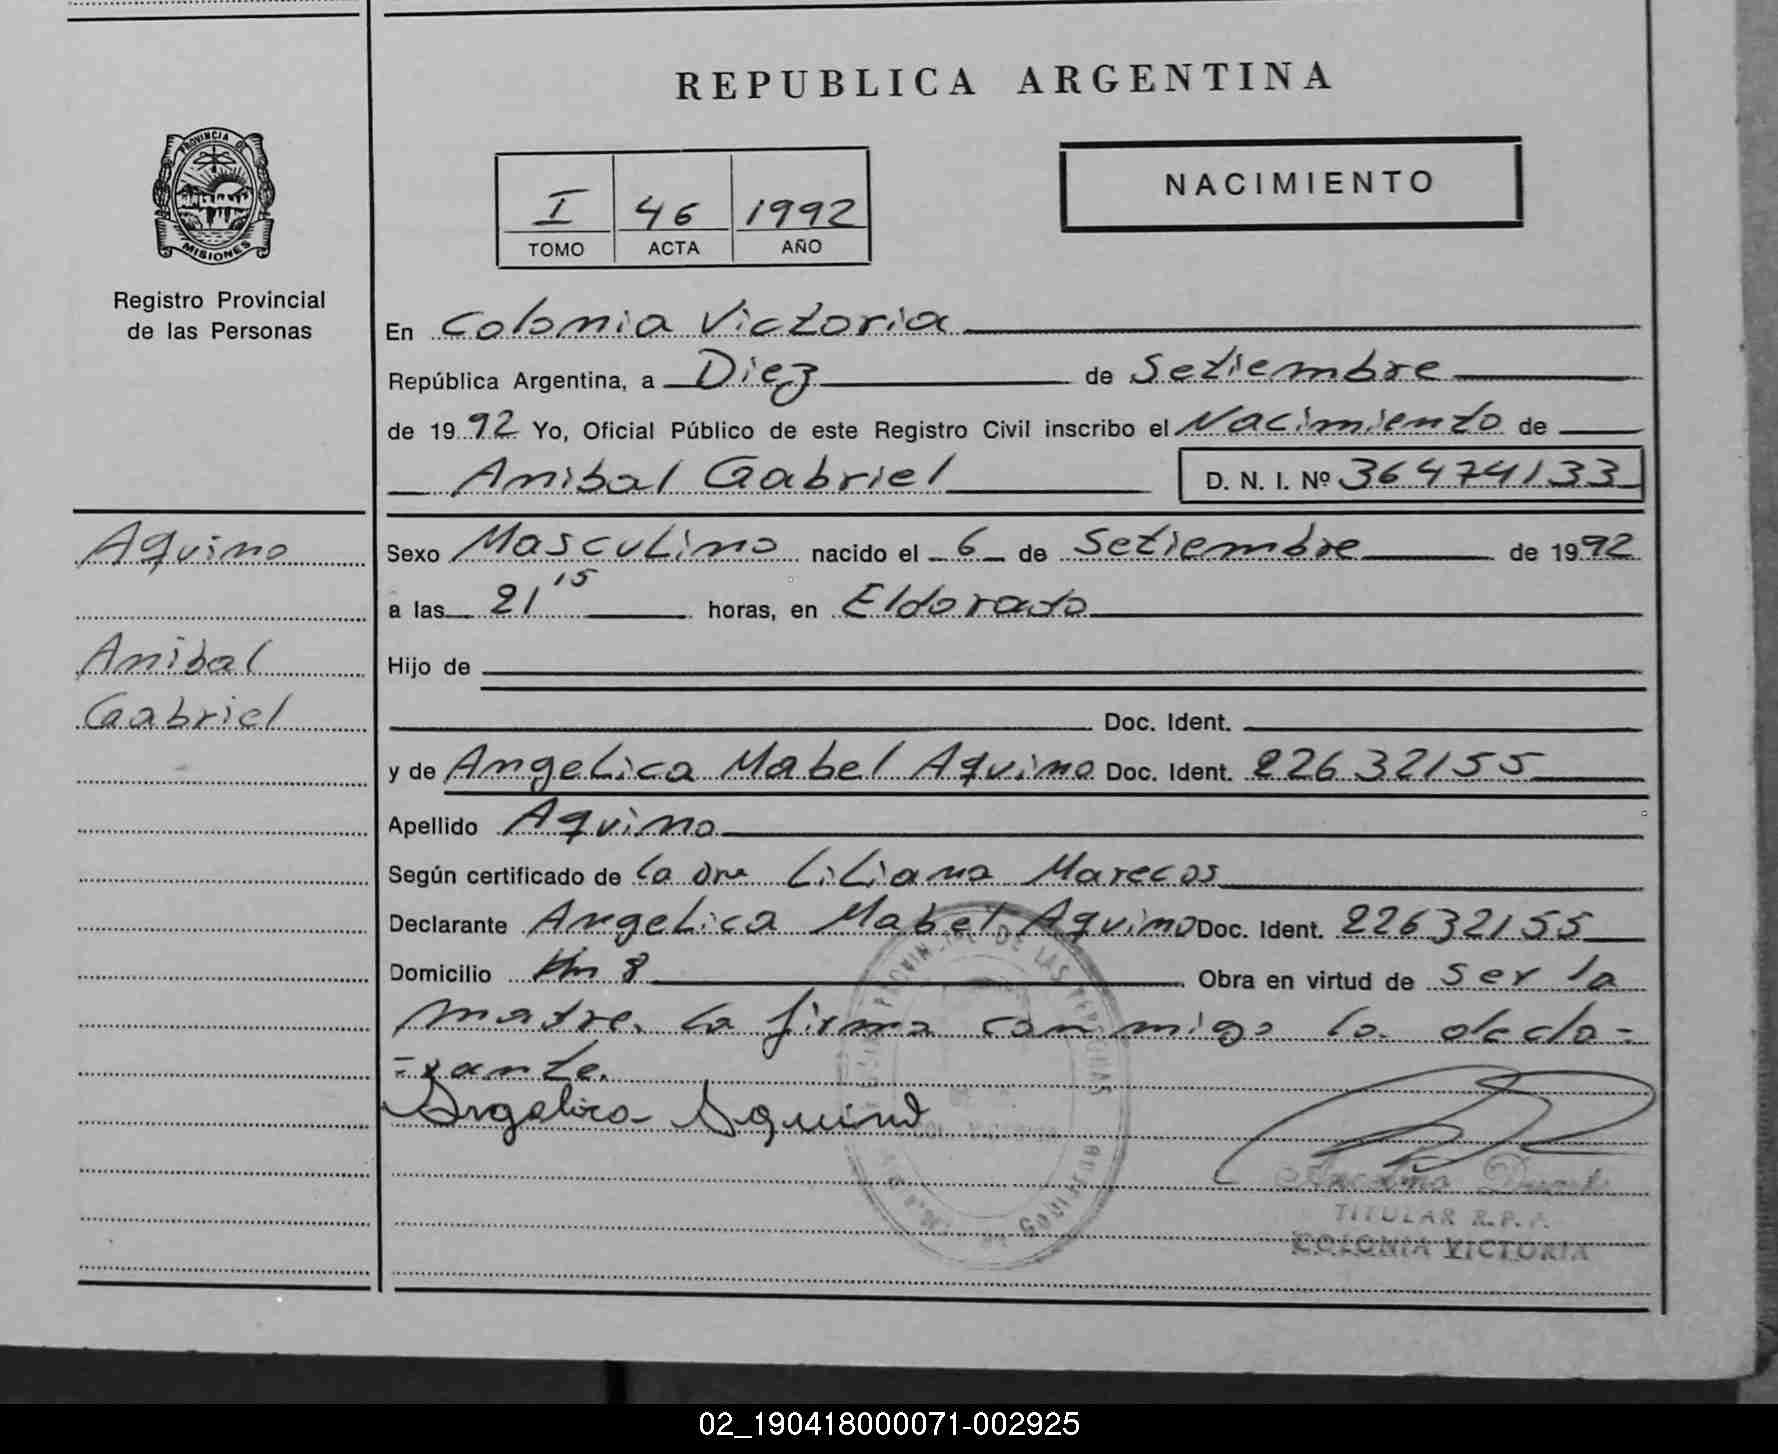 REPUBLICA ARGENTINA
PROVINCIA DE
MISIONES
Registro Provincial
de las Personas
I 46 1992
TOMO ACTA AÑO
NACIMIENTO
En Colonia Victoria
República Argentina, a Diez de Setiembre
de 1992 Yo, Oficial Público de este Registro Civil inscribo el Nacimiento de
Anibal Gabriel D. N. I. Nº 36474133
Aquino
Anibal
Gabriel
Sexo Masculino nacido el 6 de Setiembre de 1992
a las 21 15 horas, en Eldorado
Hijo de
Doc. Ident.
y de Angelica Mabel Aquino Doc. Ident. 22632155
Apellido Aquino
Según certificado de la Dra Liliana Marecos
Declarante Angelica Mabel Aquino Doc. Ident. 22632155
Domicilio Km 8 Obra en virtud de ser la
madre. La firma conmigo la decla=
=rante.
Angelica Aquino
TITULAR R.P.P.
COLONIA VICTORIA
02_190418000071-002925